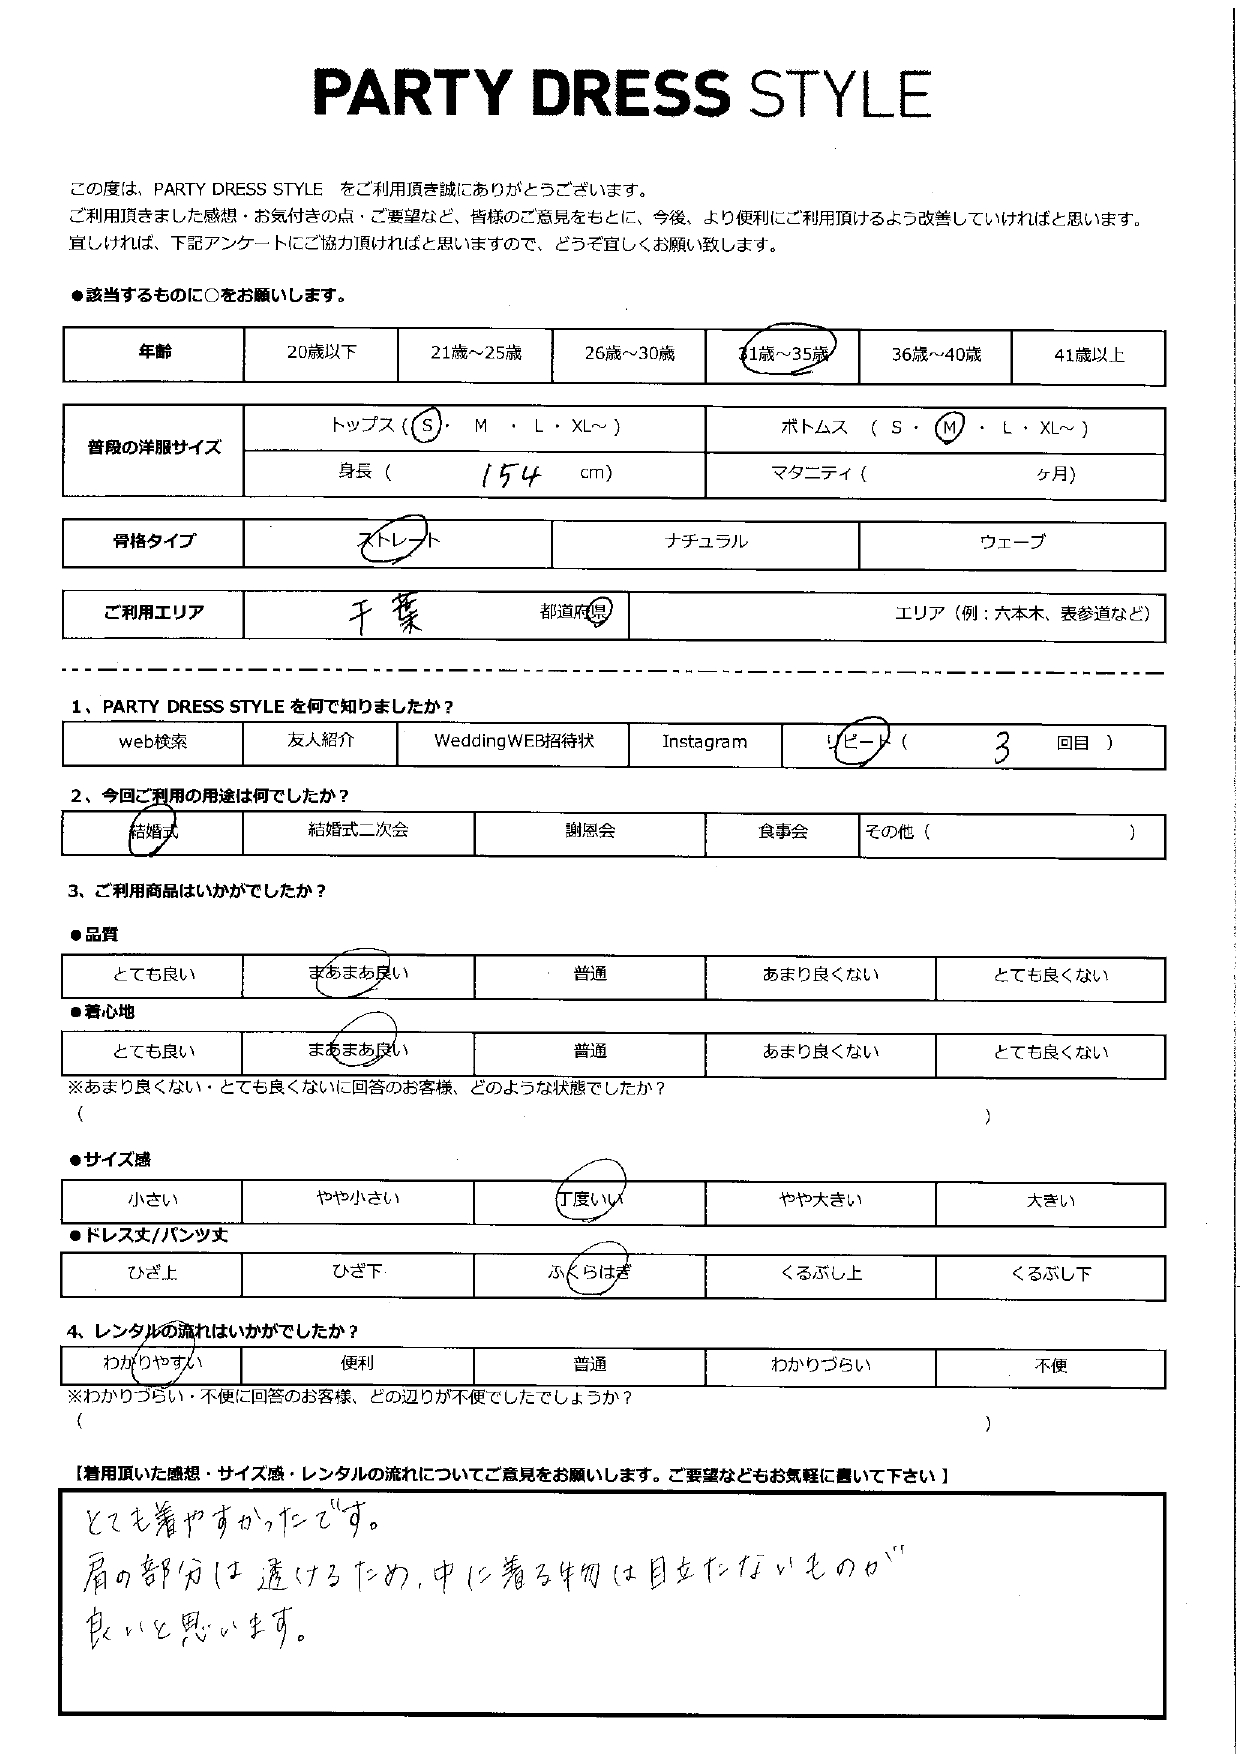 PARTY DRESS STYLE
この度は、PARTY DRESS STYLE をご利用頂き誠にありがとうございます。
ご利用頂きました感想・お気付きの点・ご要望など、皆様のご意見をもとに、今後、より便利にご利用頂けるよう改善していければと思います。
宜しければ、下記アンケートにご協力頂ければと思いますので、どうぞ宜しくお願い致します。
●該当するものに○をお願いします。
年齢 20歳以下 21歳～25歳 26歳～30歳 31歳～35歳 36歳～40歳 41歳以上
普段の洋服サイズ トップス ( S ・ M ・ L ・ XL～ ) ボトムス ( S ・ M ・ L ・ XL～ )
身長 ( 154 cm) マタニティ ( ヶ月)
骨格タイプ ストレート ナチュラル ウェーブ
ご利用エリア 千葉 都道府県 エリア（例：六本木、表参道など）
1、PARTY DRESS STYLE を何で知りましたか？
web検索 友人紹介 WeddingWEB招待状 Instagram リピート ( 3 回目 )
2、今回ご利用の用途は何でしたか？
結婚式 結婚式二次会 謝恩会 食事会 その他 ( )
3、ご利用商品はいかがでしたか？
●品質
とても良い まあまあ良い 普通 あまり良くない とても良くない
●着心地
とても良い まあまあ良い 普通 あまり良くない とても良くない
※あまり良くない・とても良くないに回答のお客様、どのような状態でしたか？
( )
●サイズ感
小さい やや小さい 丁度いい やや大きい 大きい
●ドレス丈/パンツ丈
ひざ上 ひざ下 ふくらはぎ くるぶし上 くるぶし下
4、レンタルの流れはいかがでしたか？
わかりやすい 便利 普通 わかりづらい 不便
※わかりづらい・不便に回答のお客様、どの辺りが不便でしたでしょうか？
( )
【着用頂いた感想・サイズ感・レンタルの流れについてご意見をお願いします。ご要望などもお気軽に書いて下さい】
とても着やすかったです。
肩の部分は透けるため、中に着る物は目立たないものが
良いと思います。